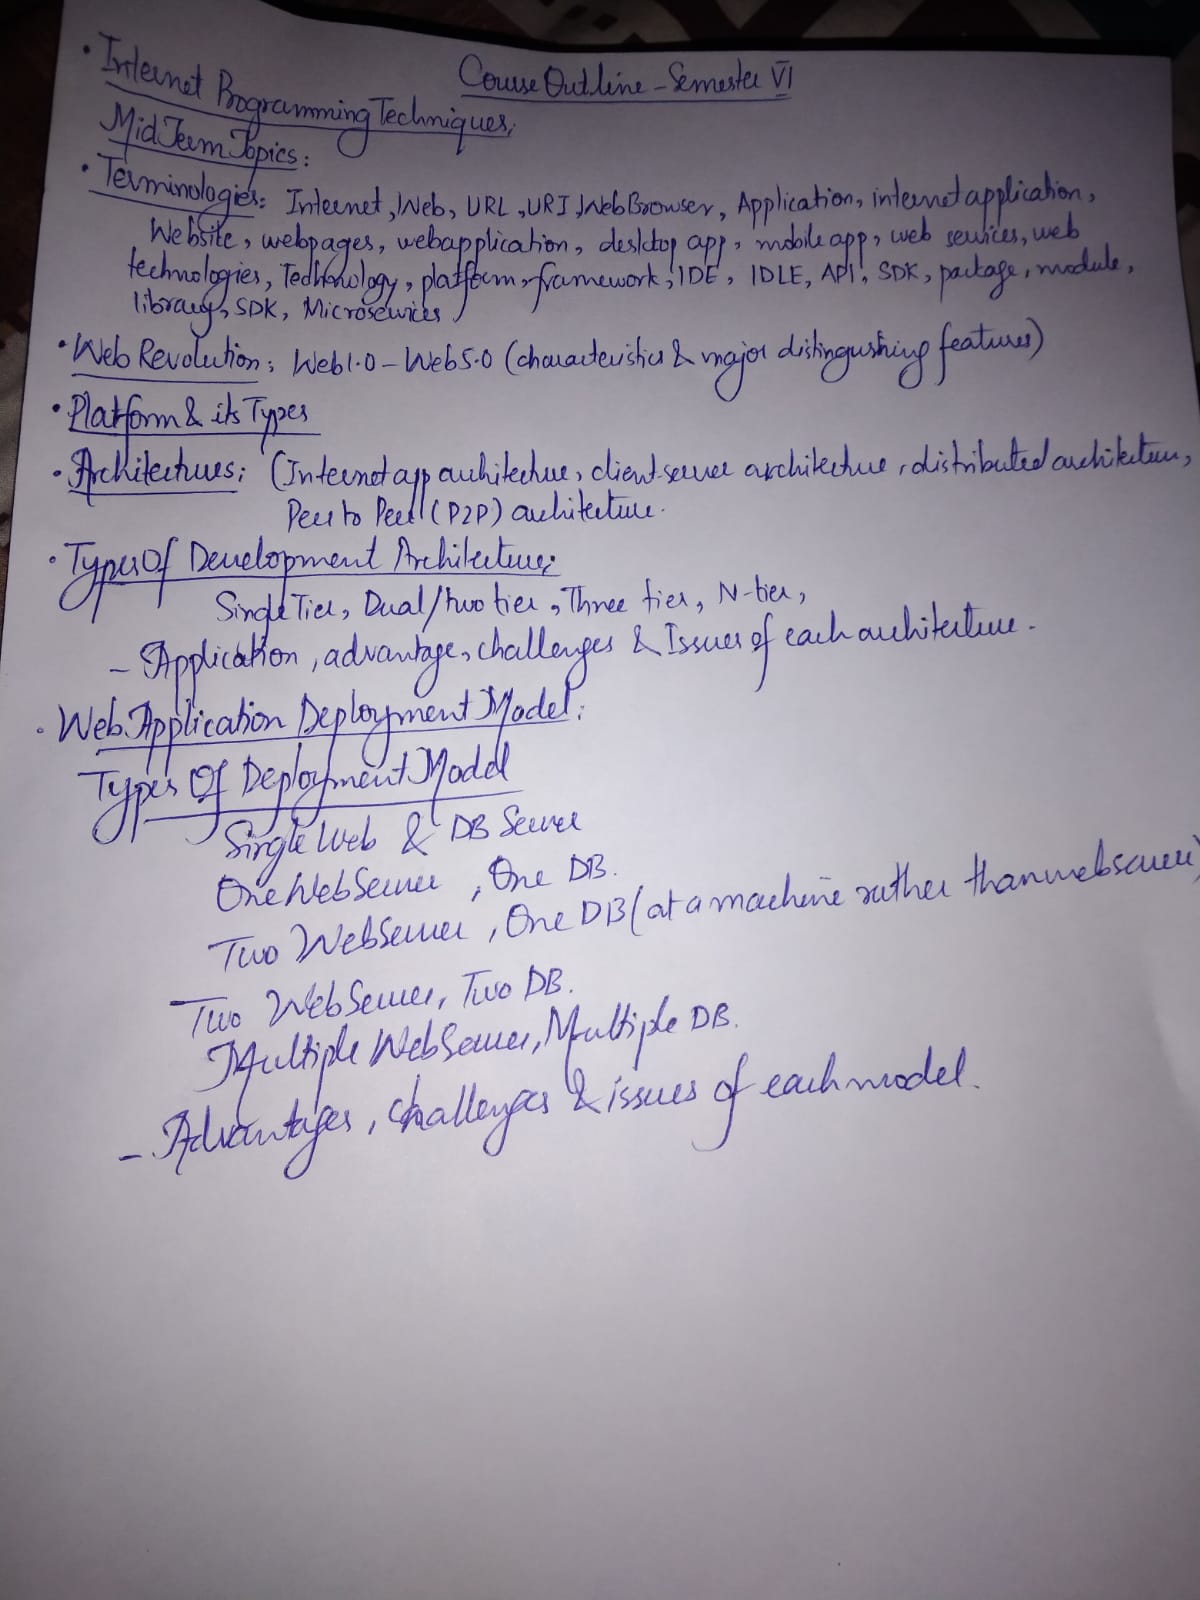 Course Outline - Semester VI
• Internet Programming Techniques:
Mid Term Topics:
• Terminologies: Internet, Web, URL, URI, Web Browser, Application, internet application,
Website, webpages, webapplication, desktop app, mobile app, web services, web
technologies, Technology, platform, framework, IDE, IDLE, API, SDK, package, module,
library, SDK, Microservices
• Web Revolution: Web1.0 - Web5.0 (characteristics & major distingushing features)
• Platform & its Types
• Architectures: (Internet app architecture, client-server architecture, distributed architecture,
Peer to Peer (P2P) architecture.
• Types Of Development Architecture:
Single Tier, Dual/two tier, Three tier, N-tier,
- Application, advantage, challenges & Issues of each architecture.
• Web Application Deployment Model:
Types Of Deployment Model
Single Web & DB Server
One Web Server, One DB.
Two Web Server, One DB (at a machine rather than webserver)
Two Web Server, Two DB.
Multiple Web Server, Multiple DB.
- Advantages, challenges & issues of each model.